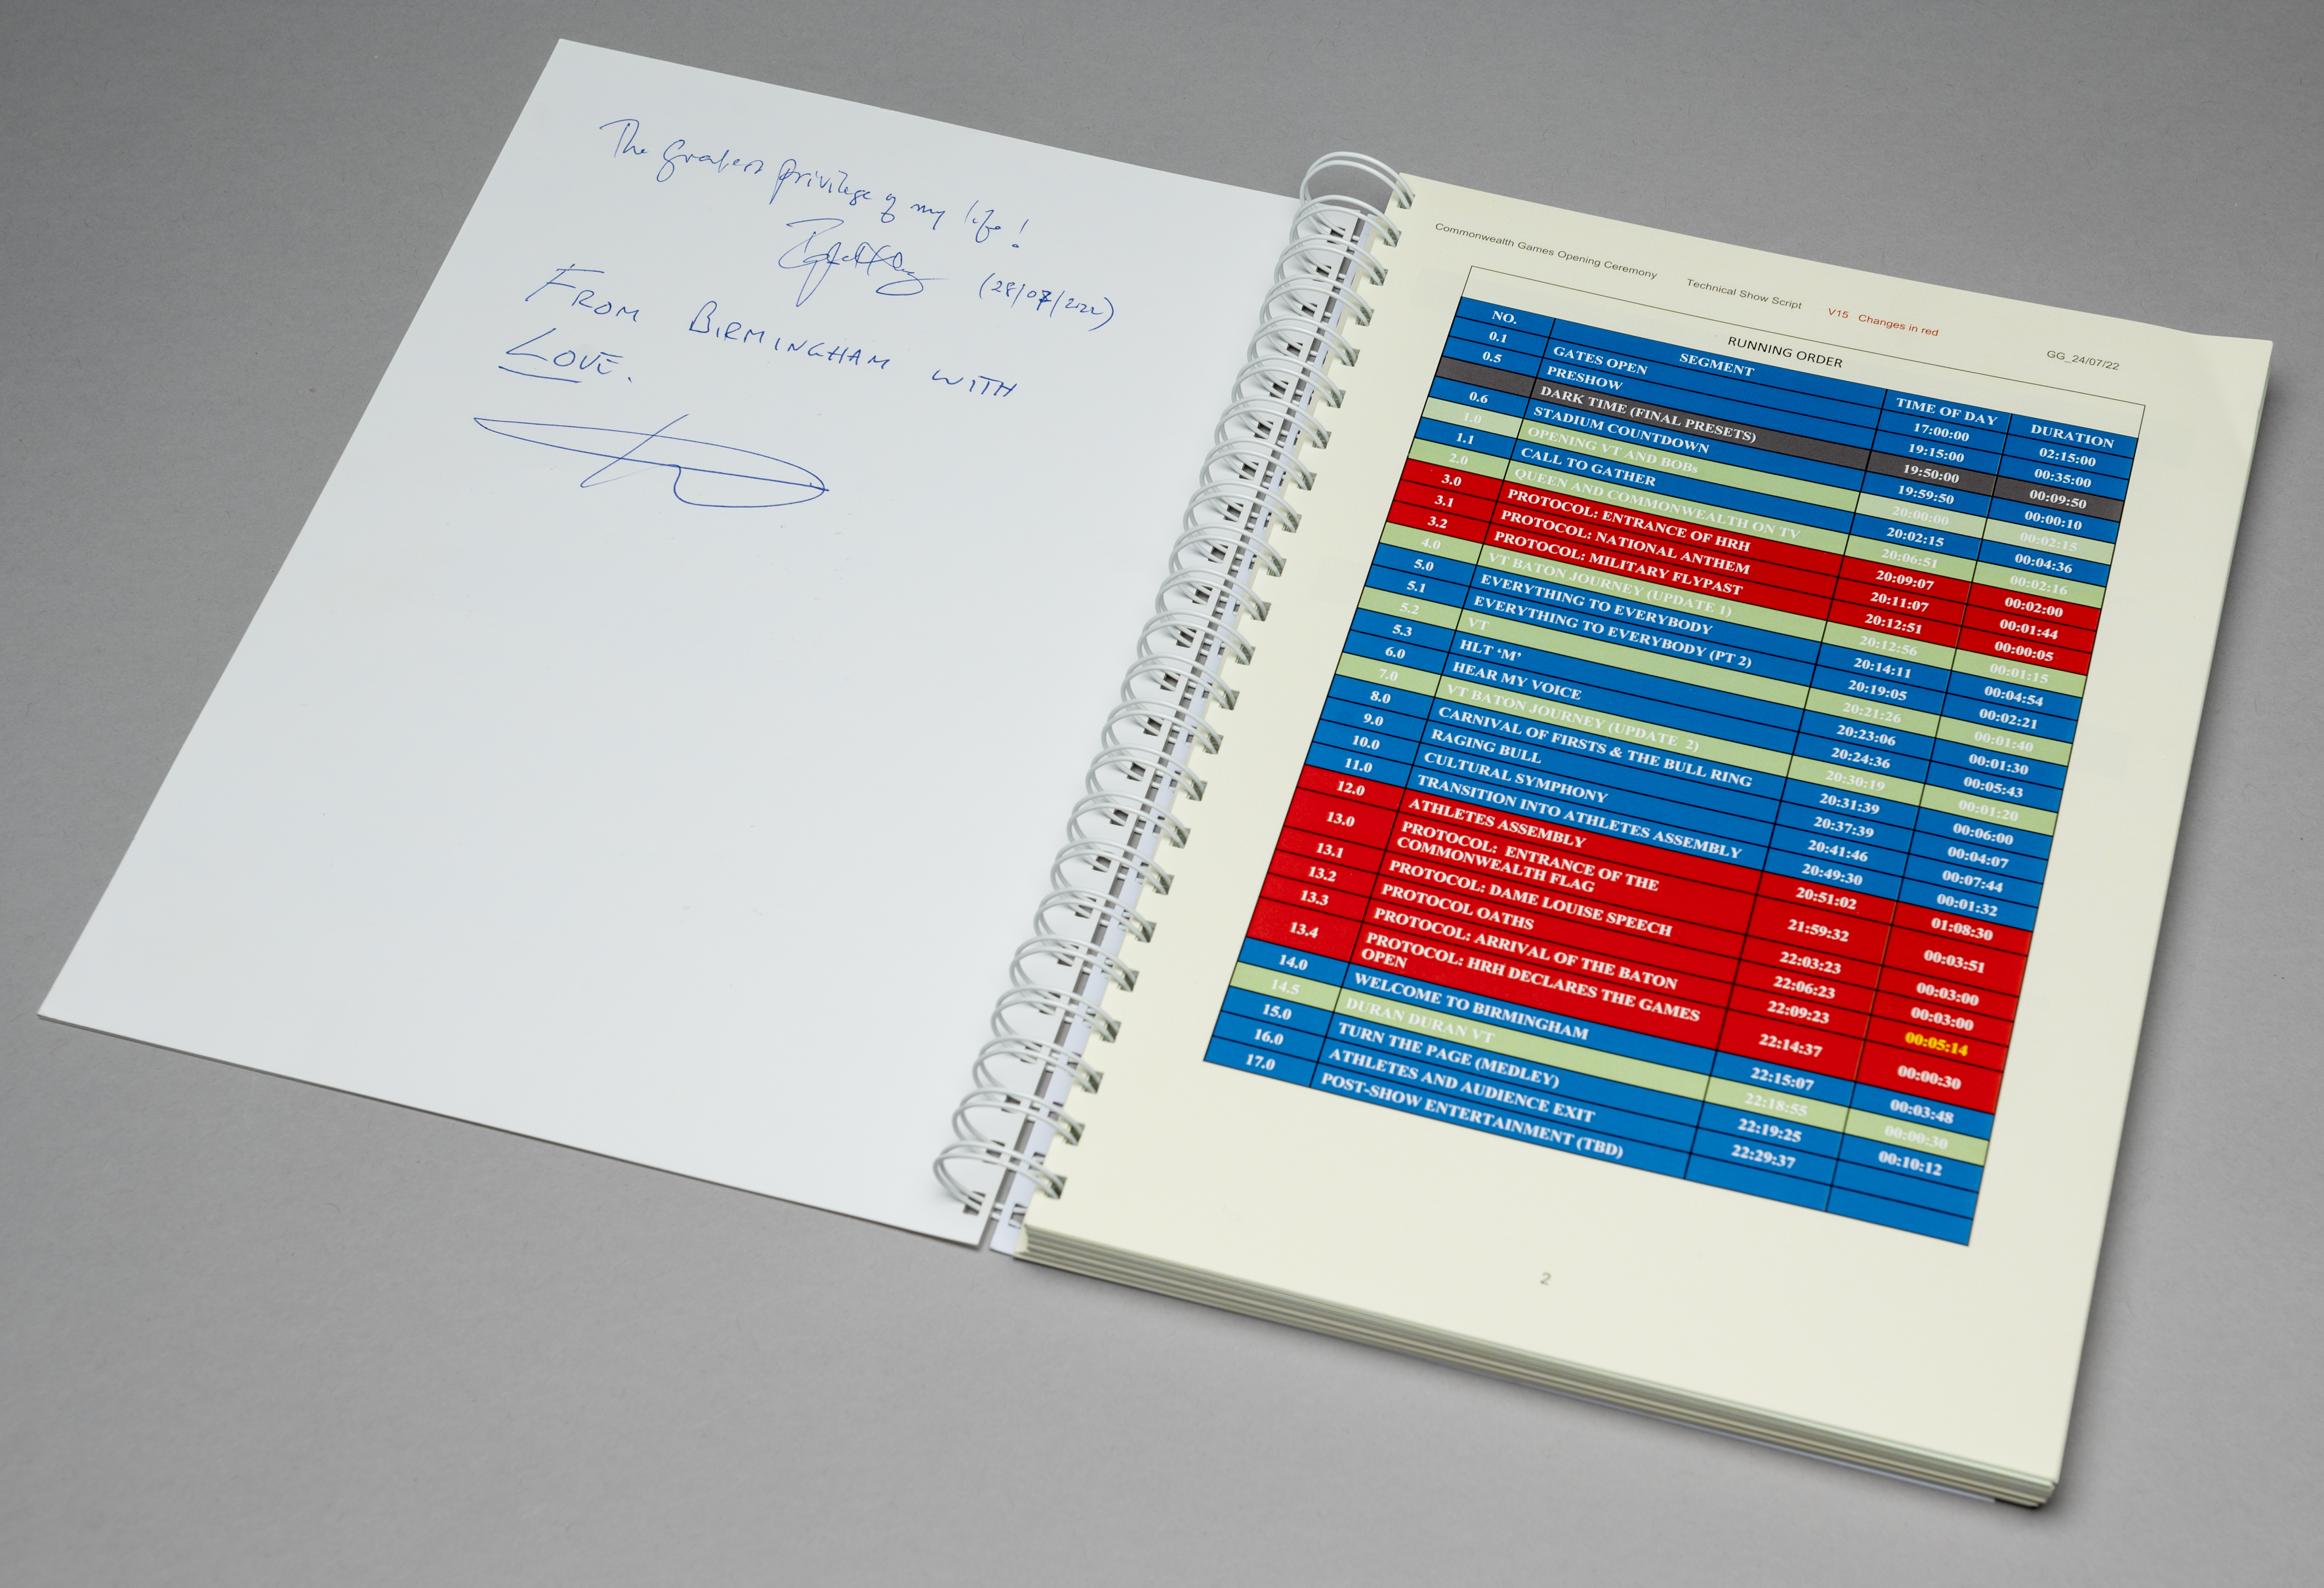 The greatest privilege of my life!
(28/07/2022)
FROM BIRMINGHAM WITH
LOVE.
Commonwealth Games Opening Ceremony Technical Show Script V15 Changes in red GG_24/07/22
RUNNING ORDER
NO. SEGMENT TIME OF DAY DURATION
0.1 GATES OPEN 17:00:00 02:15:00
0.5 PRESHOW 19:15:00 00:35:00
DARK TIME (FINAL PRESETS) 19:50:00 00:09:50
0.6 STADIUM COUNTDOWN 19:59:50 00:00:10
1.0 OPENING VT AND BOBs 20:00:00 00:02:15
1.1 CALL TO GATHER 20:02:15 00:04:36
2.0 QUEEN AND COMMONWEALTH ON TV 20:06:51 00:02:16
3.0 PROTOCOL: ENTRANCE OF HRH 20:09:07 00:02:00
3.1 PROTOCOL: NATIONAL ANTHEM 20:11:07 00:01:44
3.2 PROTOCOL: MILITARY FLYPAST 20:12:51 00:00:05
4.0 VT BATON JOURNEY (UPDATE 1) 20:12:56 00:01:15
5.0 EVERYTHING TO EVERYBODY 20:14:11 00:04:54
5.1 EVERYTHING TO EVERYBODY (PT 2) 20:19:05 00:02:21
5.2 VT 20:21:26 00:01:40
5.3 HLT ‘M’ 20:23:06 00:01:30
6.0 HEAR MY VOICE 20:24:36 00:05:43
7.0 VT BATON JOURNEY (UPDATE 2) 20:30:19 00:01:20
8.0 CARNIVAL OF FIRSTS & THE BULL RING 20:31:39 00:06:00
9.0 RAGING BULL 20:37:39 00:04:07
10.0 CULTURAL SYMPHONY 20:41:46 00:07:44
11.0 TRANSITION INTO ATHLETES ASSEMBLY 20:49:30 00:01:32
12.0 ATHLETES ASSEMBLY 20:51:02 01:08:30
13.0 PROTOCOL: ENTRANCE OF THE
COMMONWEALTH FLAG 21:59:32 00:03:51
13.1 PROTOCOL: DAME LOUISE SPEECH 22:03:23 00:03:00
13.2 PROTOCOL OATHS 22:06:23 00:03:00
13.3 PROTOCOL: ARRIVAL OF THE BATON 22:09:23 00:05:14
13.4 PROTOCOL: HRH DECLARES THE GAMES
OPEN 22:14:37 00:00:30
14.0 WELCOME TO BIRMINGHAM 22:15:07 00:03:48
14.5 DURAN DURAN VT 22:18:55 00:00:30
15.0 TURN THE PAGE (MEDLEY) 22:19:25 00:10:12
16.0 ATHLETES AND AUDIENCE EXIT 22:29:37
17.0 POST-SHOW ENTERTAINMENT (TBD)
2